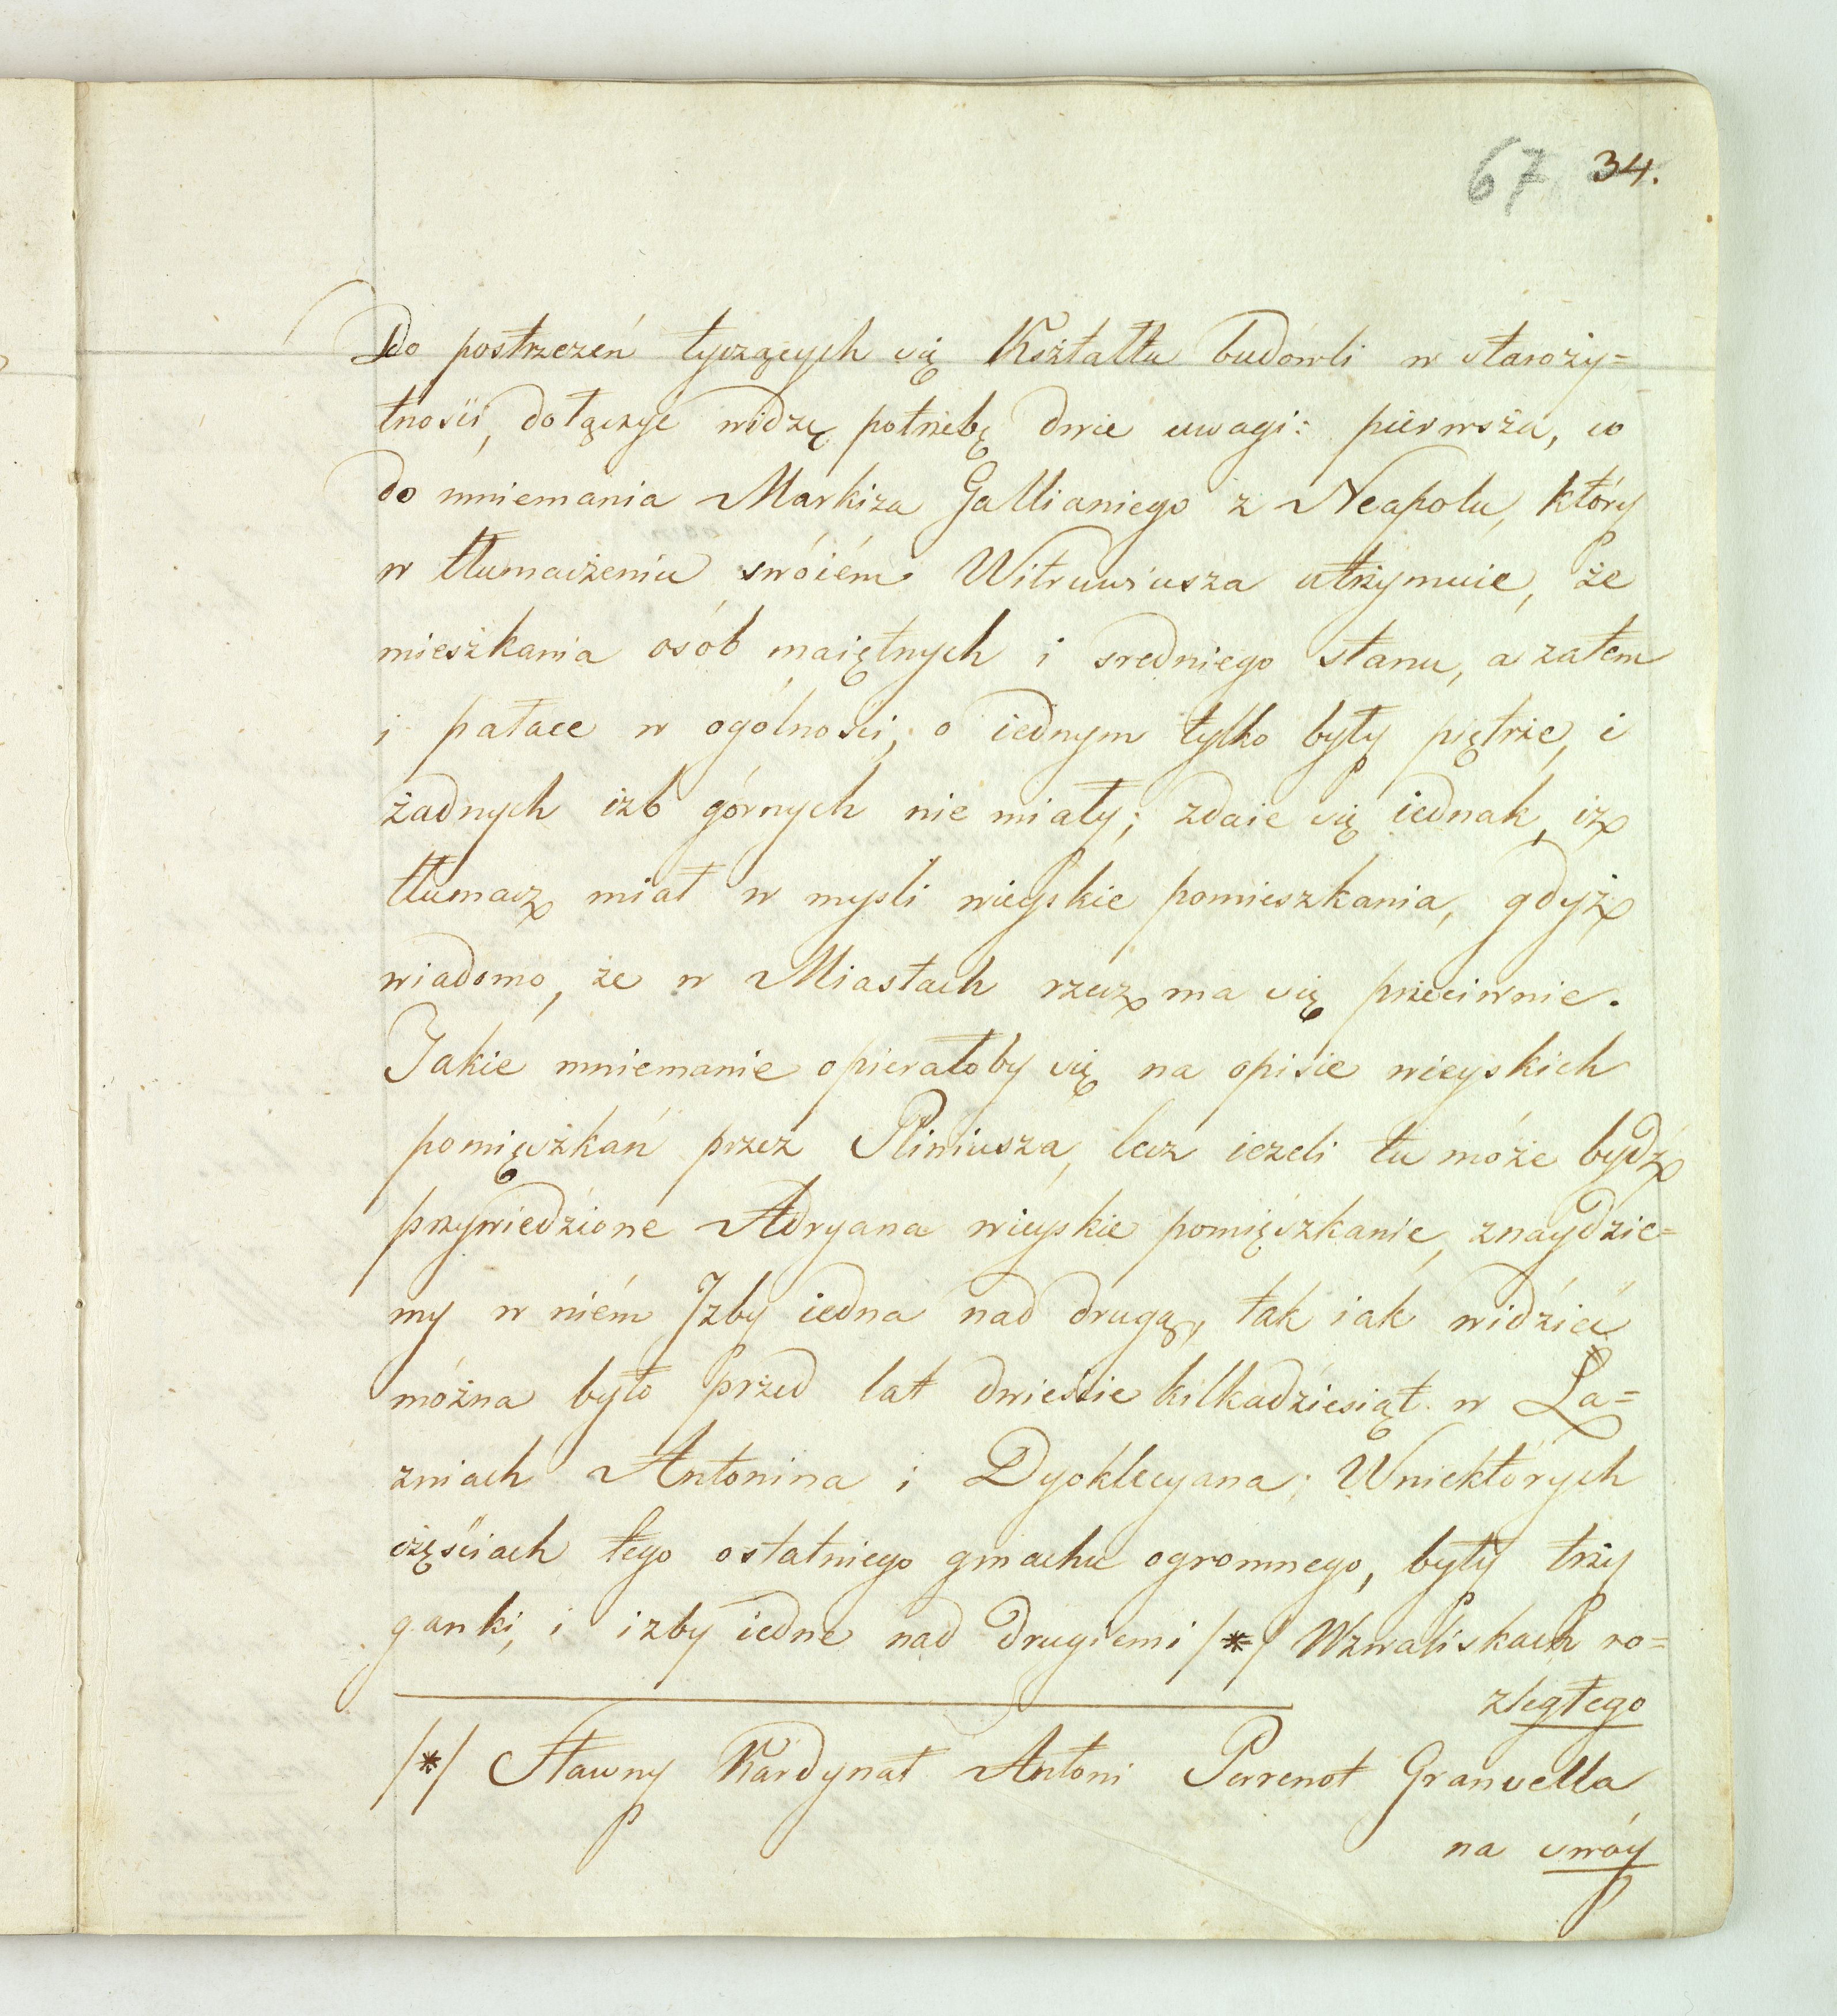 67 34.
Do postrzezeń tyczących się Kształtu budówli w staroży=
tnośii, dołączyć widzę potrzebę dwie uwagi: pierwsza, co
do mniemania Markiza Gallianiego z Neapolu, który
w tłumaczeniu swóiém Witruwiusza utrzymuie, że
mieszkania osób maiętnych i sredniego stanu, a zatem
i pałace w ogólności, o iednym tylko były piętrze, i
żadnych izb górnych nie miały; zdaie się iednak, iż
tłumacz miał w mysli wieyskie pomieszkania, gdyż
wiadomo, że w Miastach rzecz ma się przeciwnie.
Jakie mniemanie opierałoby się na opisie wieyskich
pomięszkań przez Pliniusza, lecz iezeli tu móże bydź
przywiedzione Adryana wieyskie pomięszkanie, znaydzie=
my w niém Jzby iedna nad drugą, tak iak widzieć
móżna było przed lat dwieście kilkadziesiąt w Ła=
zniach Antonina i Dyoklecyana; Wniektórych
częściach tego ostatniego gmachu ogromnego, były trzy
ganki, i izby iedne nad drugiemi /*/ Wzwaliskach ro=
zległego
/*/ Sławny Kardynał Antoni Perrenot Granvella
na swóy